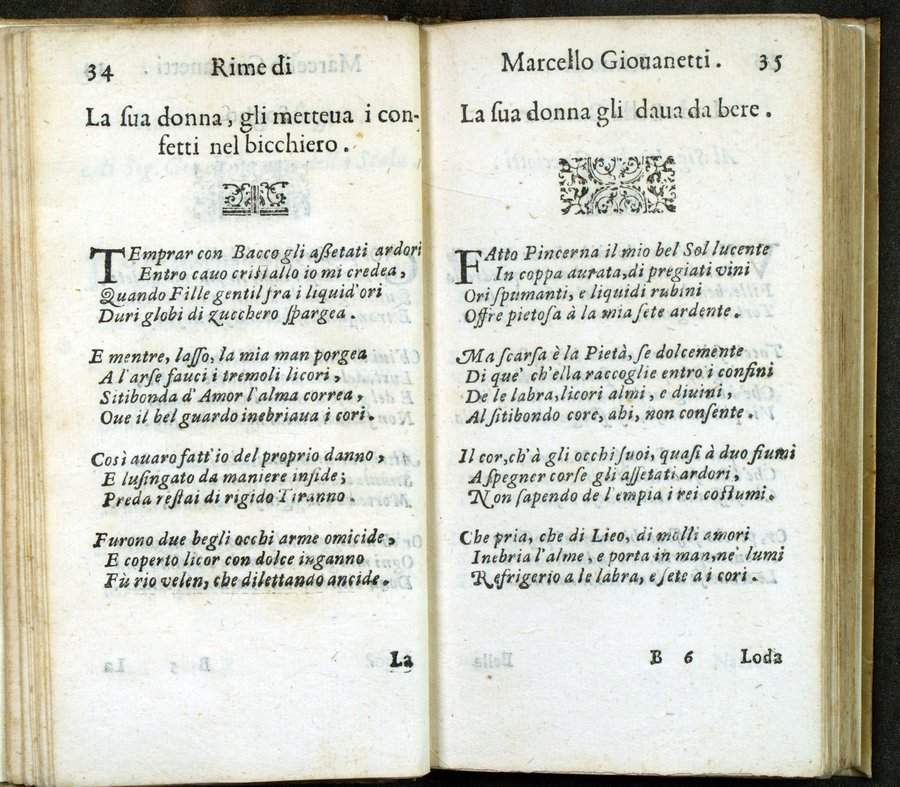 34 Rime di
La ſua donna, gli metteua i con-
fetti nel bicchiero.
TEmprar con Bacco gli aſſetati ardori
Entro cauo criſtallo io mi credea,
Quando Fille gentil fra i liquid'ori
Duri globi di zucchero ſpargea.
E mentre, laſſo, la mia man porgea
A l'arſe fauci i tremoli licori,
Sitibonda d'Amor l'alma correa,
Oue il bel guardo inebriaua i cori.
Così auaro fatt'io del proprio danno,
E luſingato da maniere infide;
Preda reſtai di rigido Tiranno.
Furono due begli occhi arme omicide,
E coperto licor con dolce inganno
Fù rio velen, che dilettando ancide.
La
Marcello Giouanetti. 35
La ſua donna gli daua da bere.
FAtto Pincerna il mio bel Sol lucente
In coppa aurata, di pregiati vini
Ori ſpumanti, e liquidi rubini
Offre pietoſa à la mia ſete ardente.
Ma ſcarſa è la Pietà, ſe dolcemente
Di que' ch'ella raccoglie entro i confini
De le labra, licori almi, e diuini,
Al ſitibondo core, ahi, non conſente.
Il cor, ch'à gli occhi ſuoi, quaſi à duo fiumi
A ſpegner corſe gli aſſetati ardori,
Non ſapendo de l'empia i rei coſtumi.
Che pria, che di Lieo, di molli amori
Inebria l'alme, e porta in man, ne' lumi
Refrigerio a le labra, e ſete a i cori.
B 6 Loda